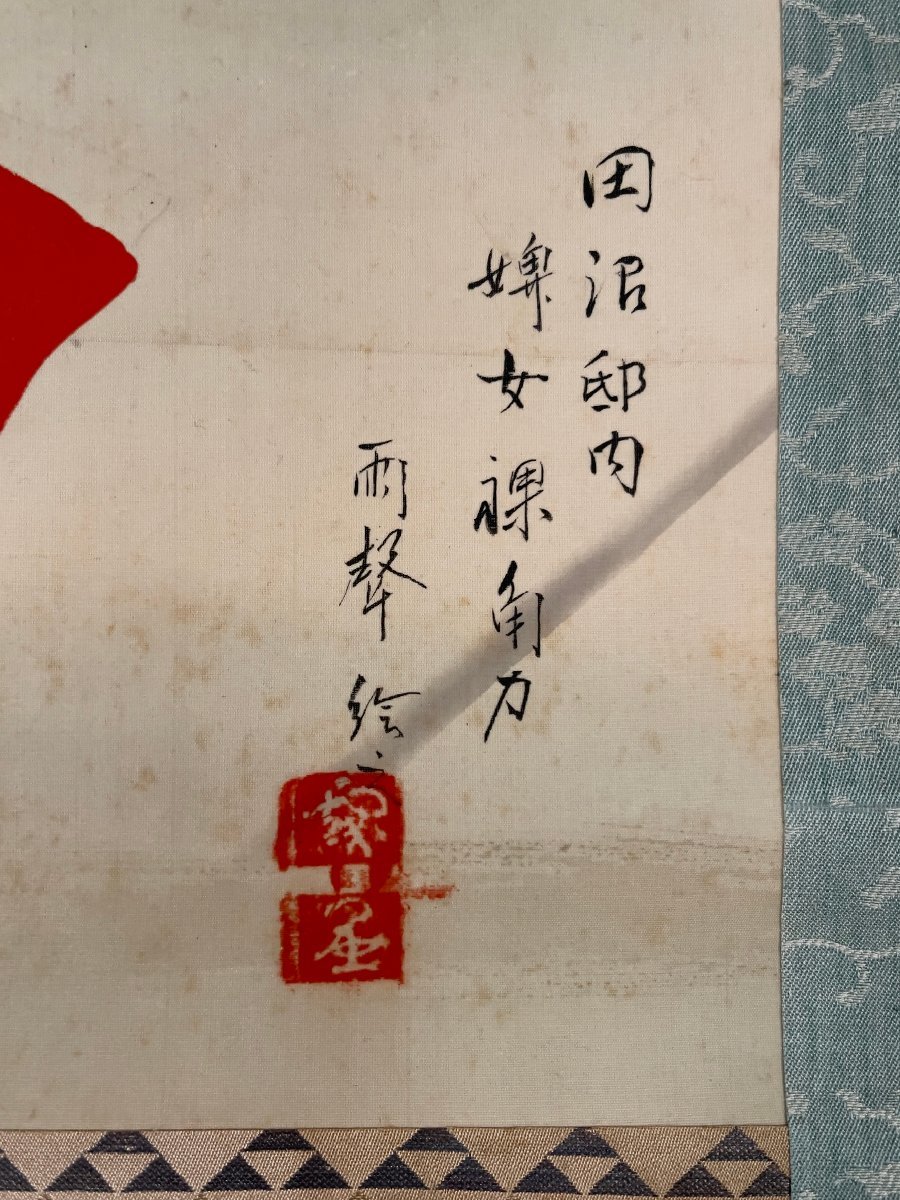 田沼邸内
婢女裸角力
雨聲絵之